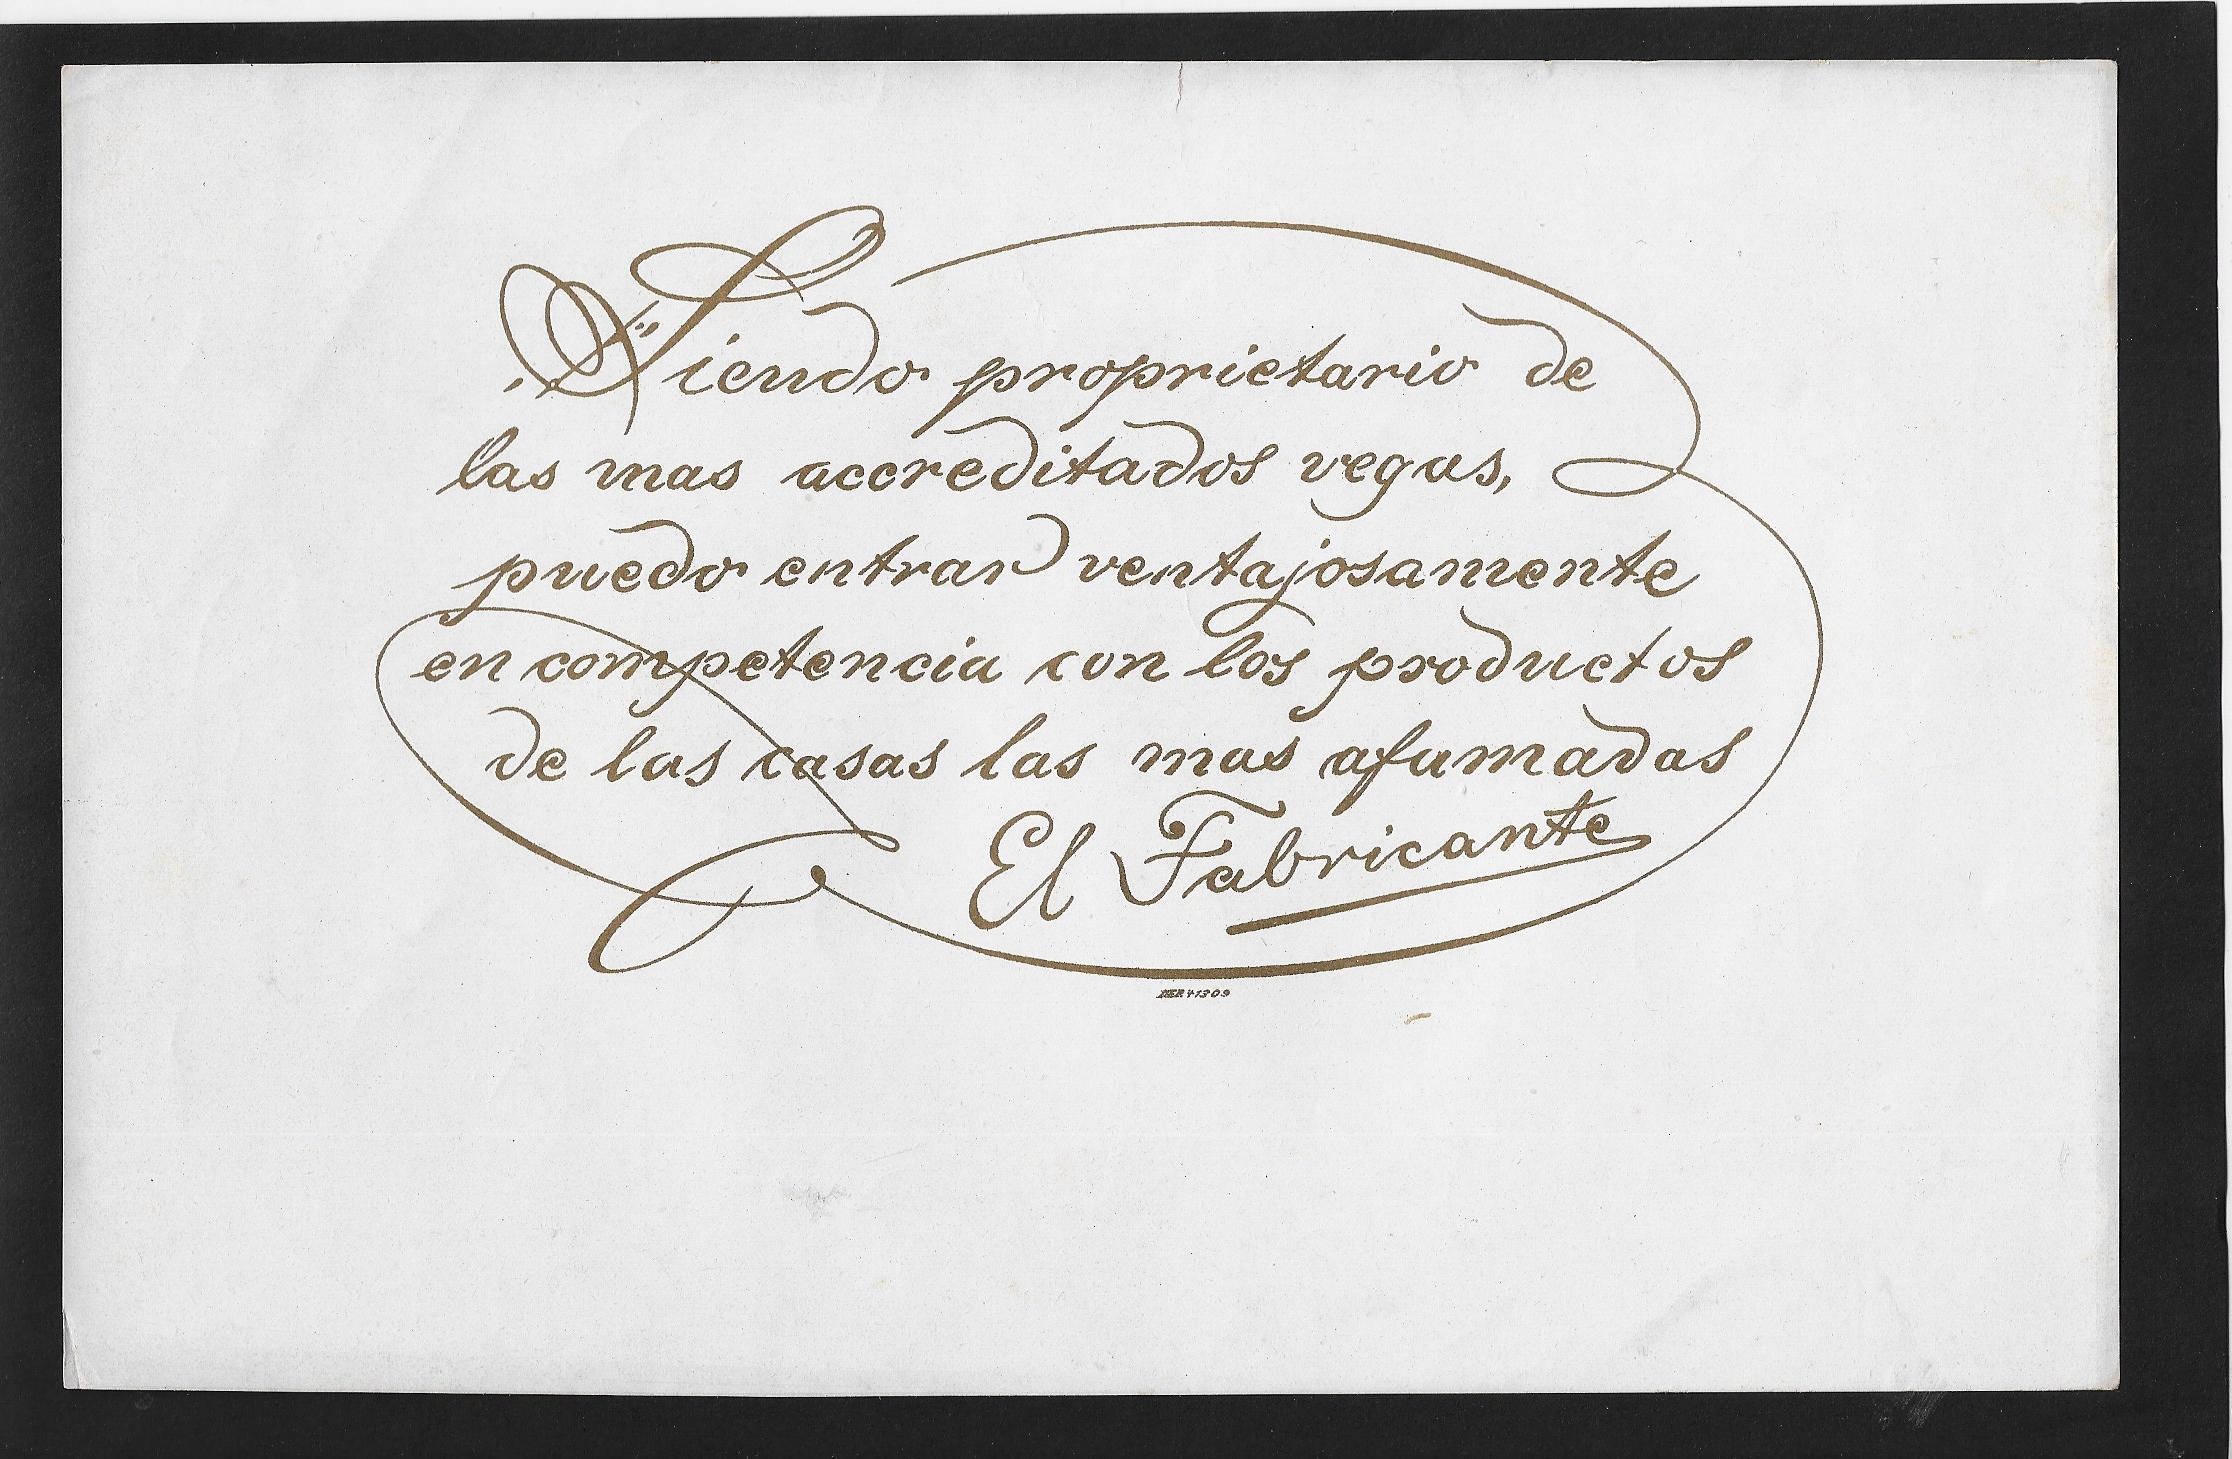 Siendo proprietario de
las mas accreditados vegas,
puedo entrar ventajosamente
en competencia con los productos
de las casas las mas afumadas
El Fabricante